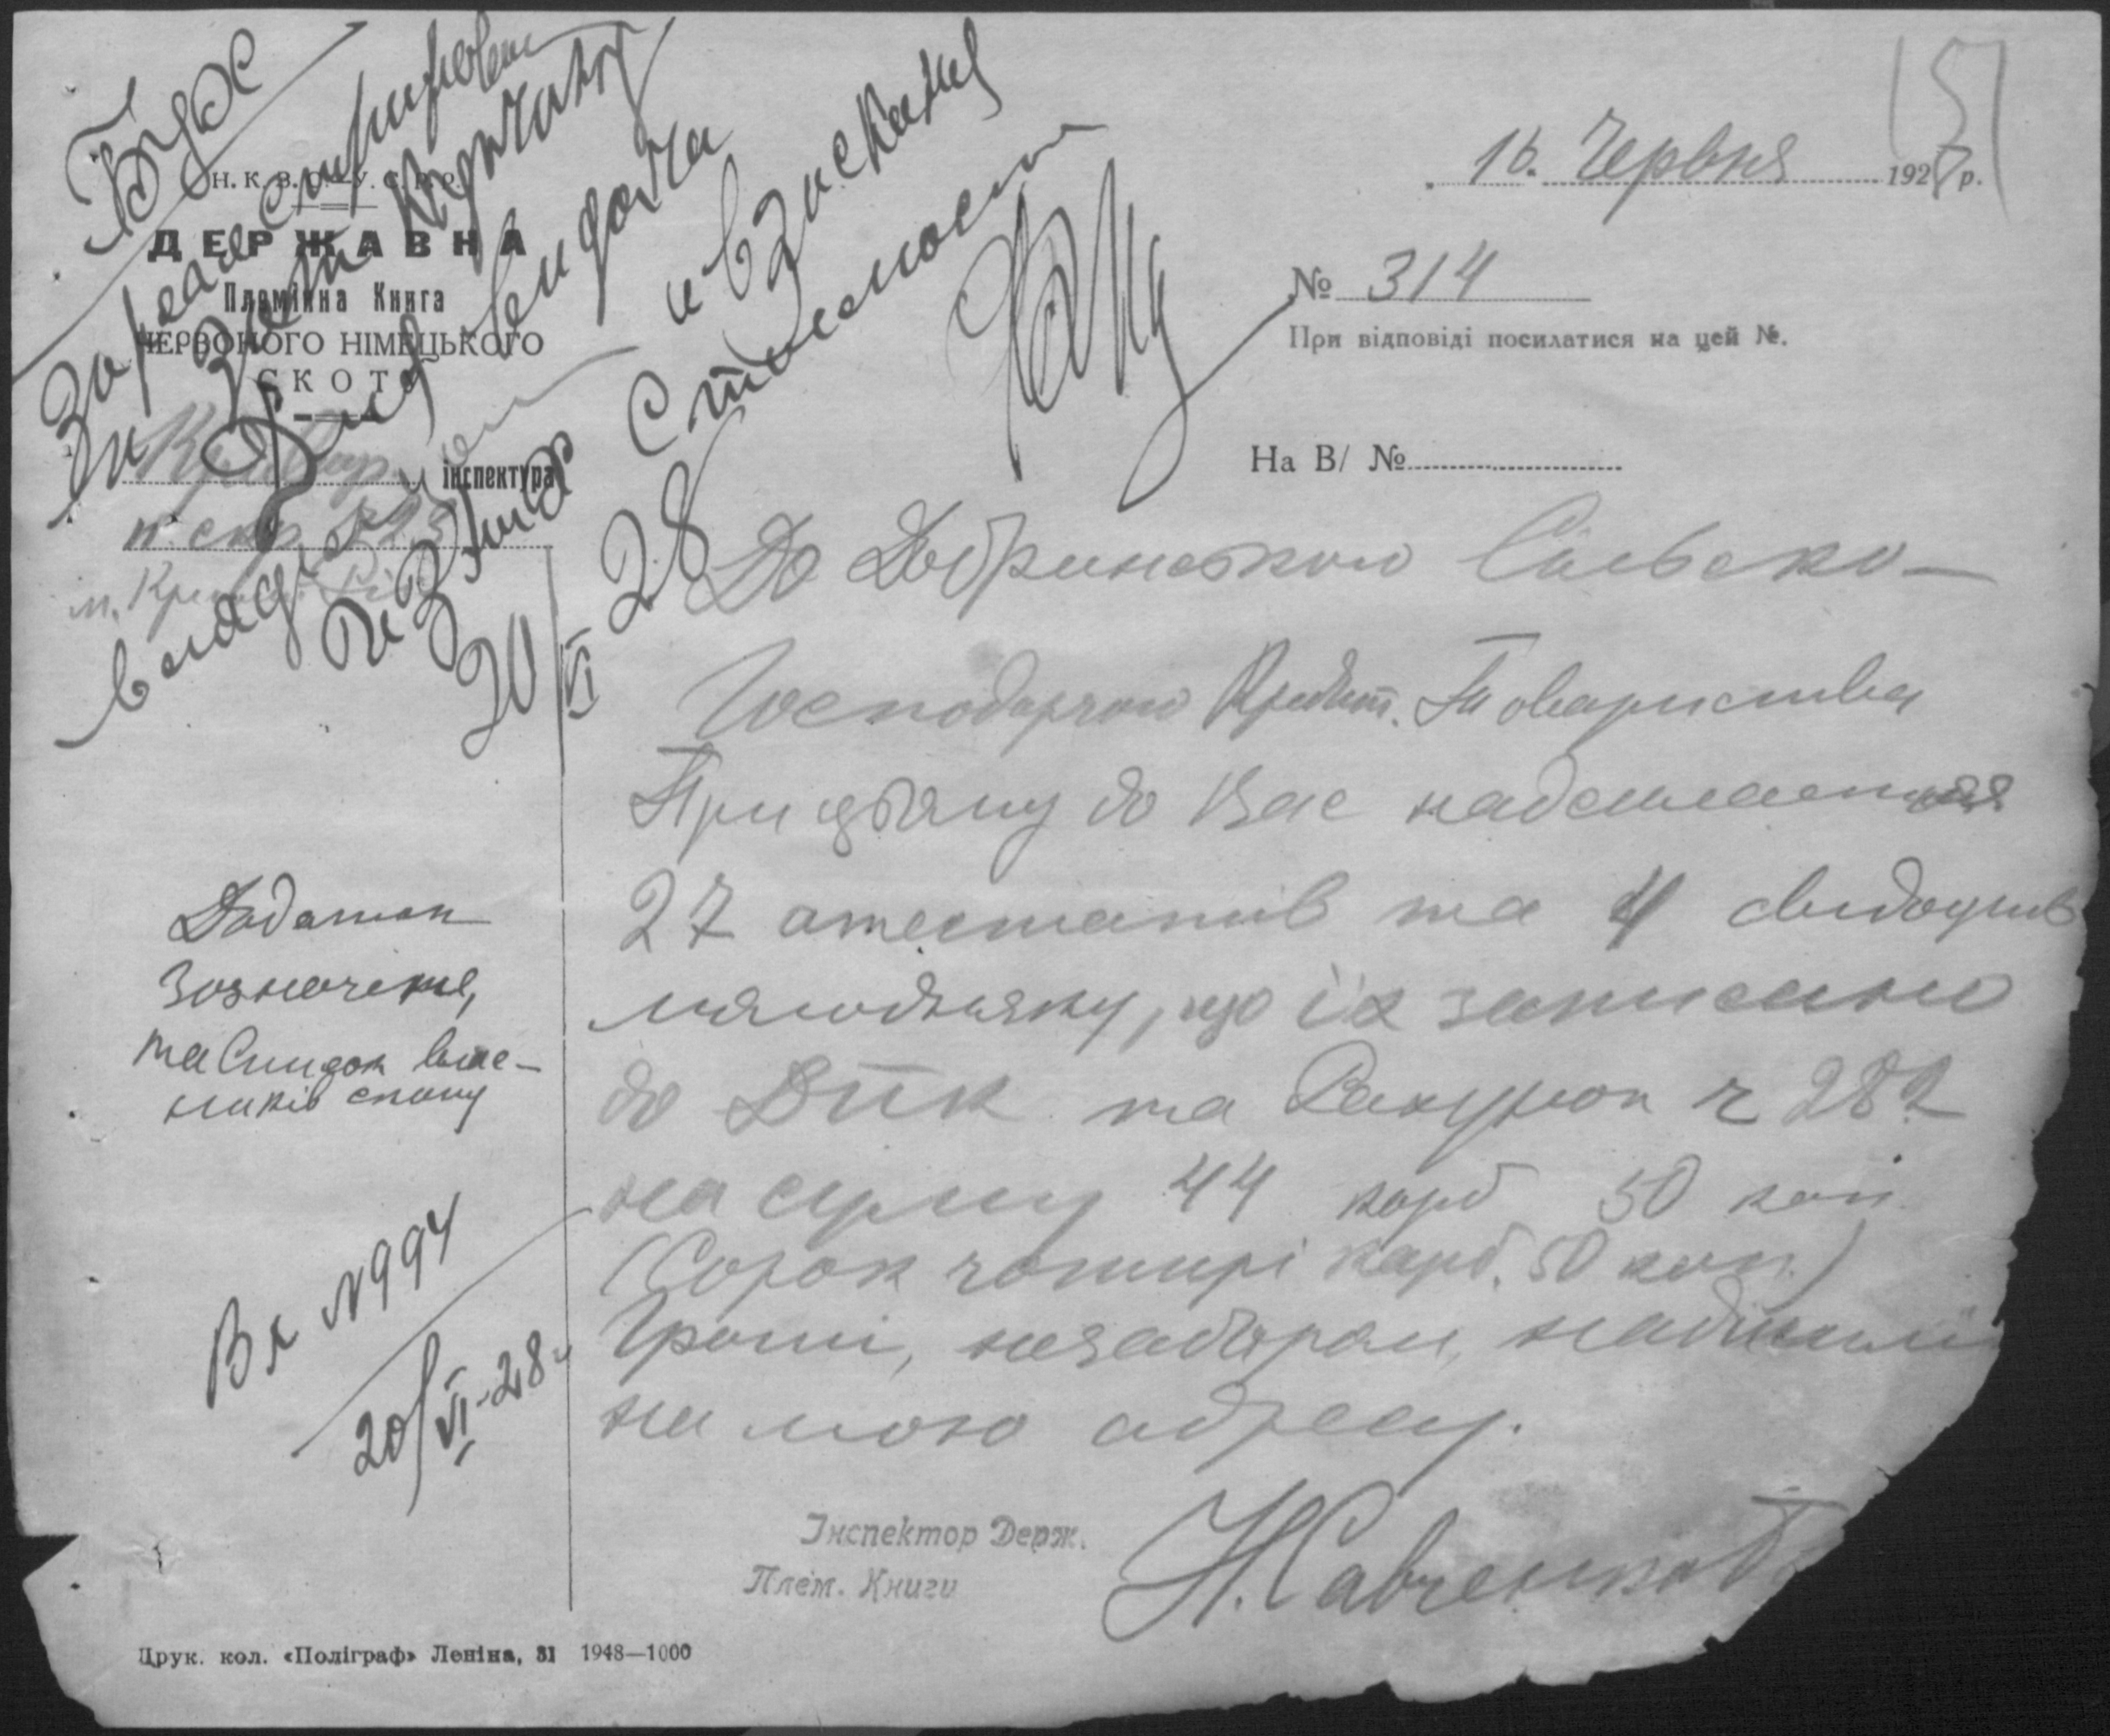 151
Н. К. З. С. У. С. Р. Р.
ДЕРЖАВНА
Племінна Книга
ЧЕРВОНОГО НІМЕЦЬКОГО
СКОТУ
інспектура
п. скр. №23
м. Кривий Ріг
16. Червня 1928 р.
№ 314
При відповіді посилатися на цей №.
На В/ №
и взыскания
Стоимости
20/VI 28
До Добринського Сільсько-
Господарчого Кредит. Товариства
При цьому до Вас надсилається
27 атестатів та 4 свидоцтв
молодняку, що їх записано
до ДПК та Рахунок ч 282
на суму 44 карб 50 коп.
(Сорок чотирі карб. 50 коп.)
Гроші, незабаром, надішліт
на мою адресу.
Додаток
Зозначене,
та Список влас-
ників скоту
Вх N994
20/VI-28
Інспектор Держ.
Плем. Книги
Н. Савченко
Друк. кол. «Поліграф» Леніна, 31 1948—1000